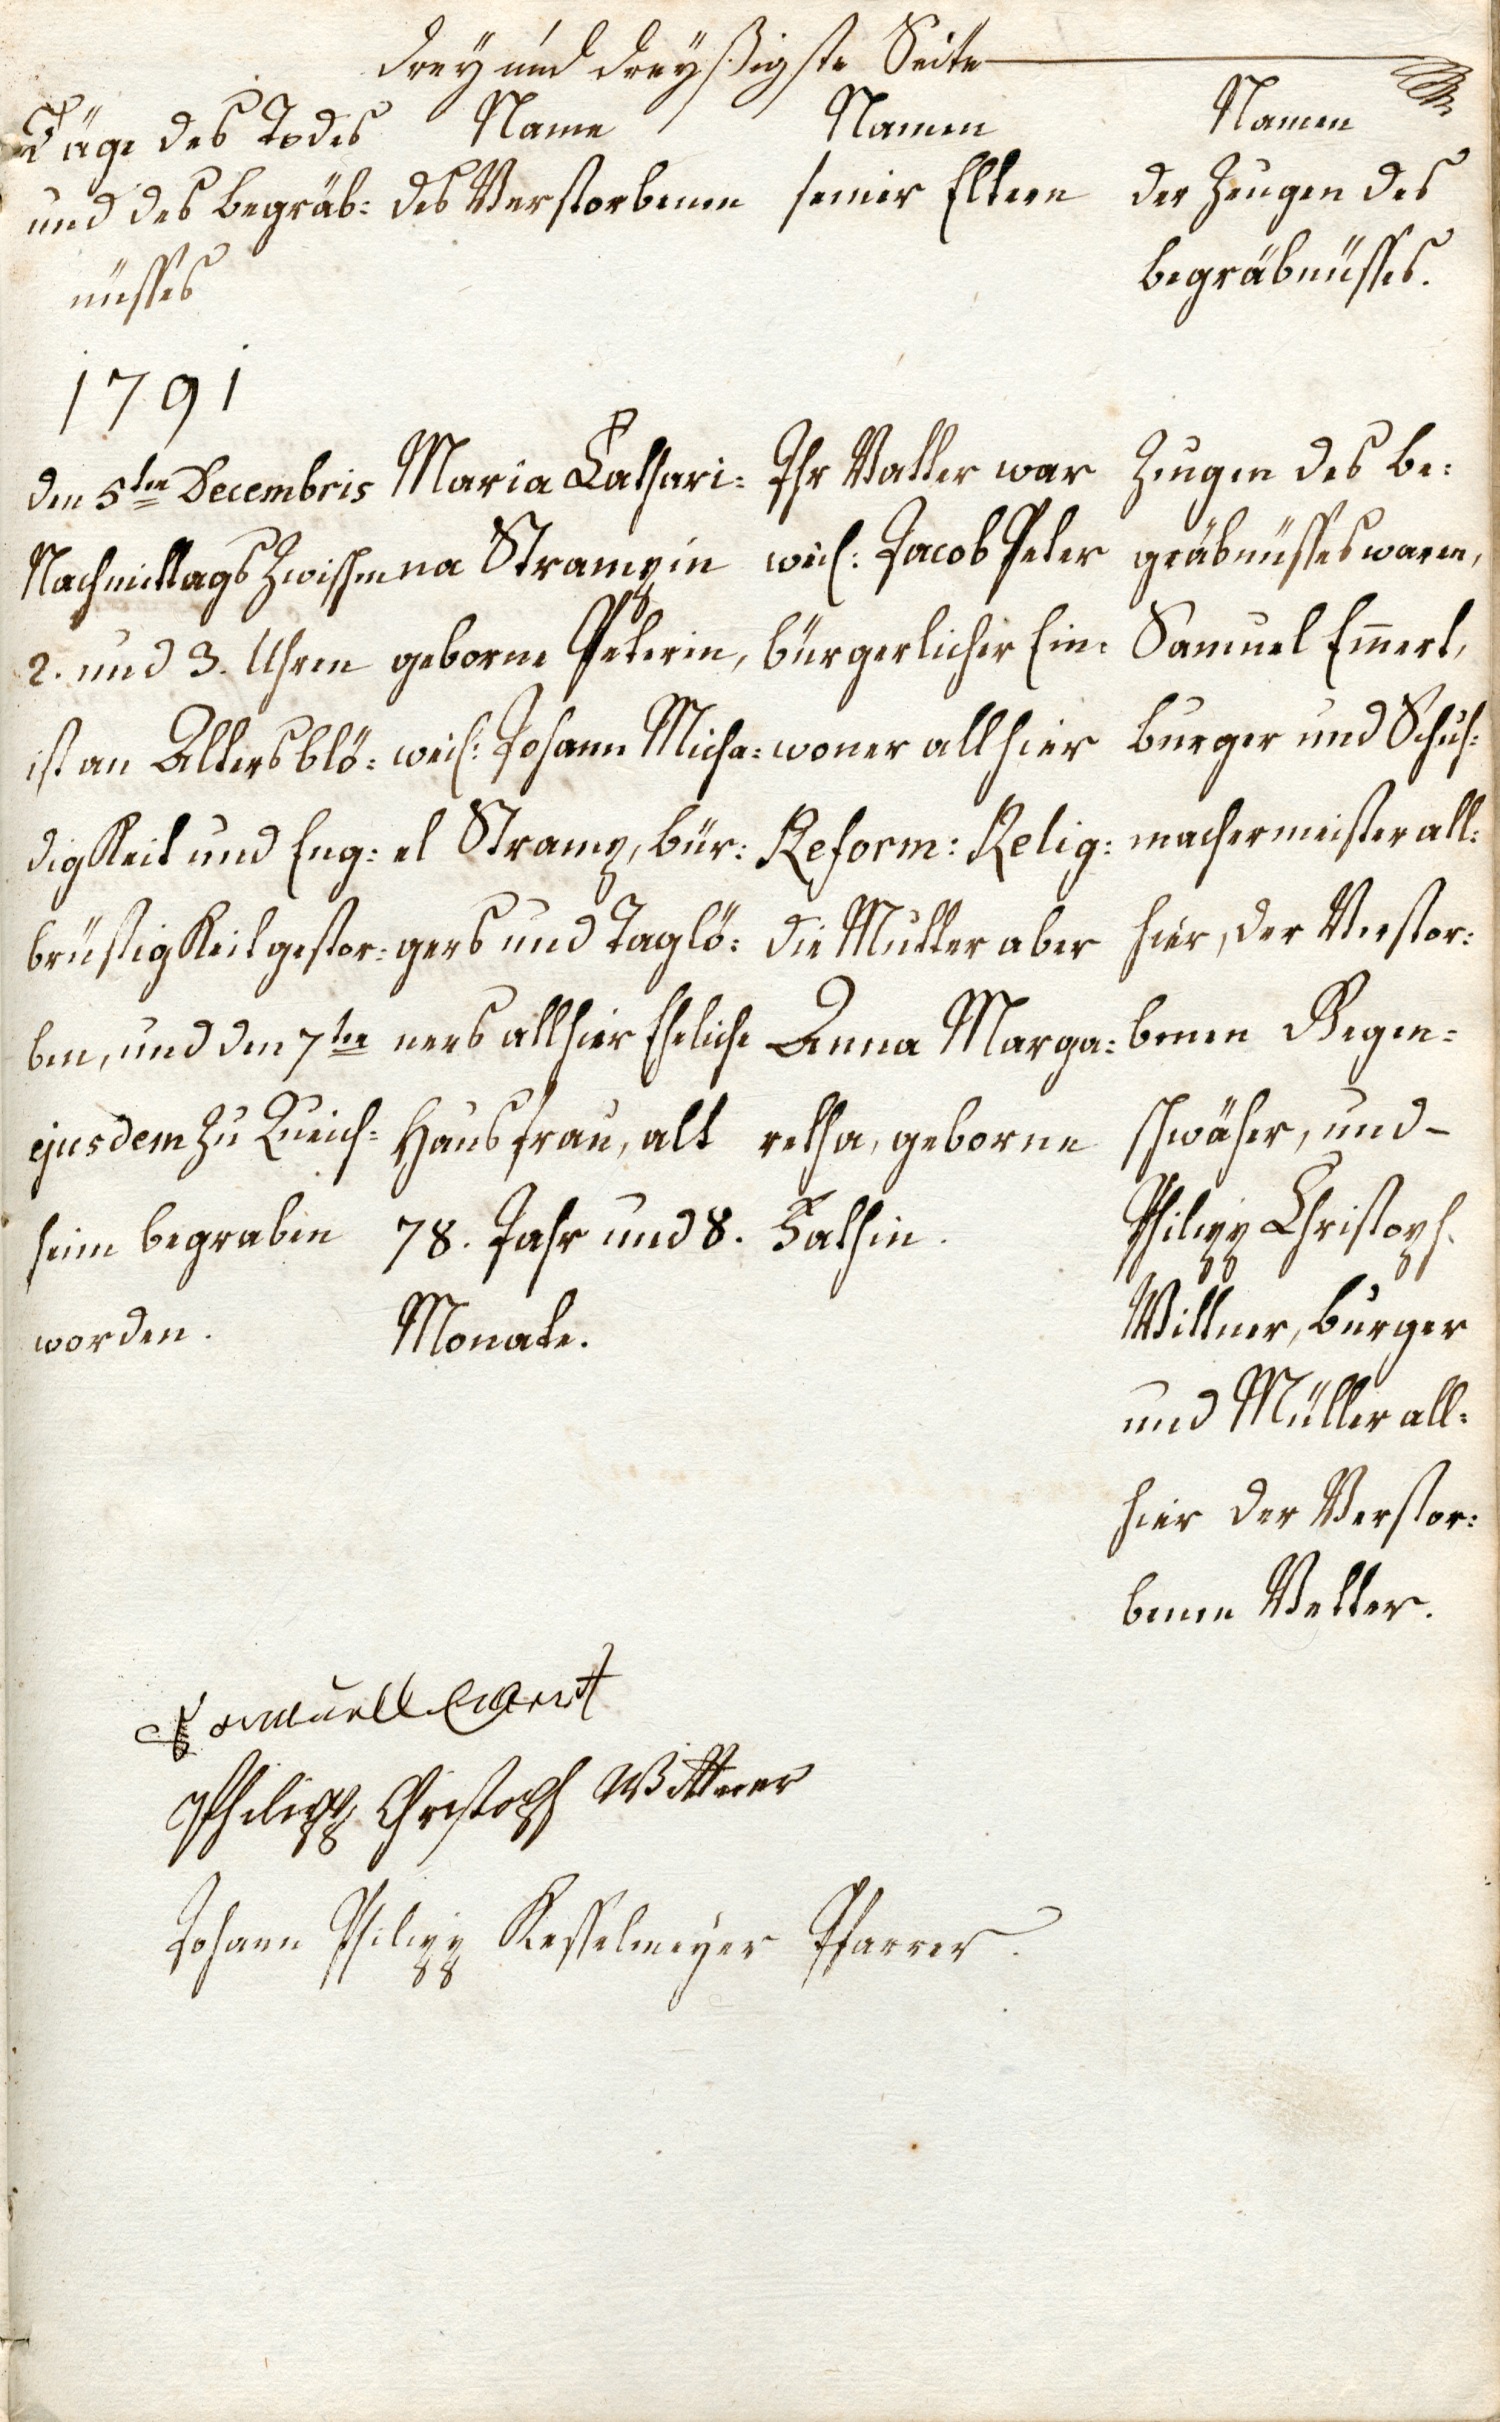 Drey und dreyßigste Seite
Täge des Todes
und des Begräb=
nüsses
Name
des Verstorbenen
Namen
seiner Eltern
Namen
der Zeugen des
Begräbnüsses.
1791
den 5ten Decembris
Nachmittags Zwischen
2. und 3. Uhren
ist an Alters blö=
digkeit und Eng=
brüstigkeit gestor=
ben, und den 7ten
ejusdem zu Queich=
heim begraben
worden.
Maria Cathari=
na Strampin
geborne Peterin,
weil: Johann Micha=
el Stramp, bür:
gers und Taglö=
ners allhier Eheliche
Hausfrau, alt
78. Jahr und 8.
Monate.
Ihr Vatter war
weil: Jacob Peter
bürgerlicher Ein=
woner allhier
Reform: Relig:
die Mutter aber
Anna Marga=
retha, geborne
Zeugen des Be=
gräbnüsses waren,
Samuel Em̄ert,
Burger und Schuh=
machermeister all=
hier, der Verstor=
benen Gegen=
schwäher, und
Philipp Christoph
Wittner, burger
und Müller all=
hier der Verstor=
benen Vetter.
Samuell Emert
Philipp Christoph Wittner
Johann Philipp Kesselmeyer Pfarrer.